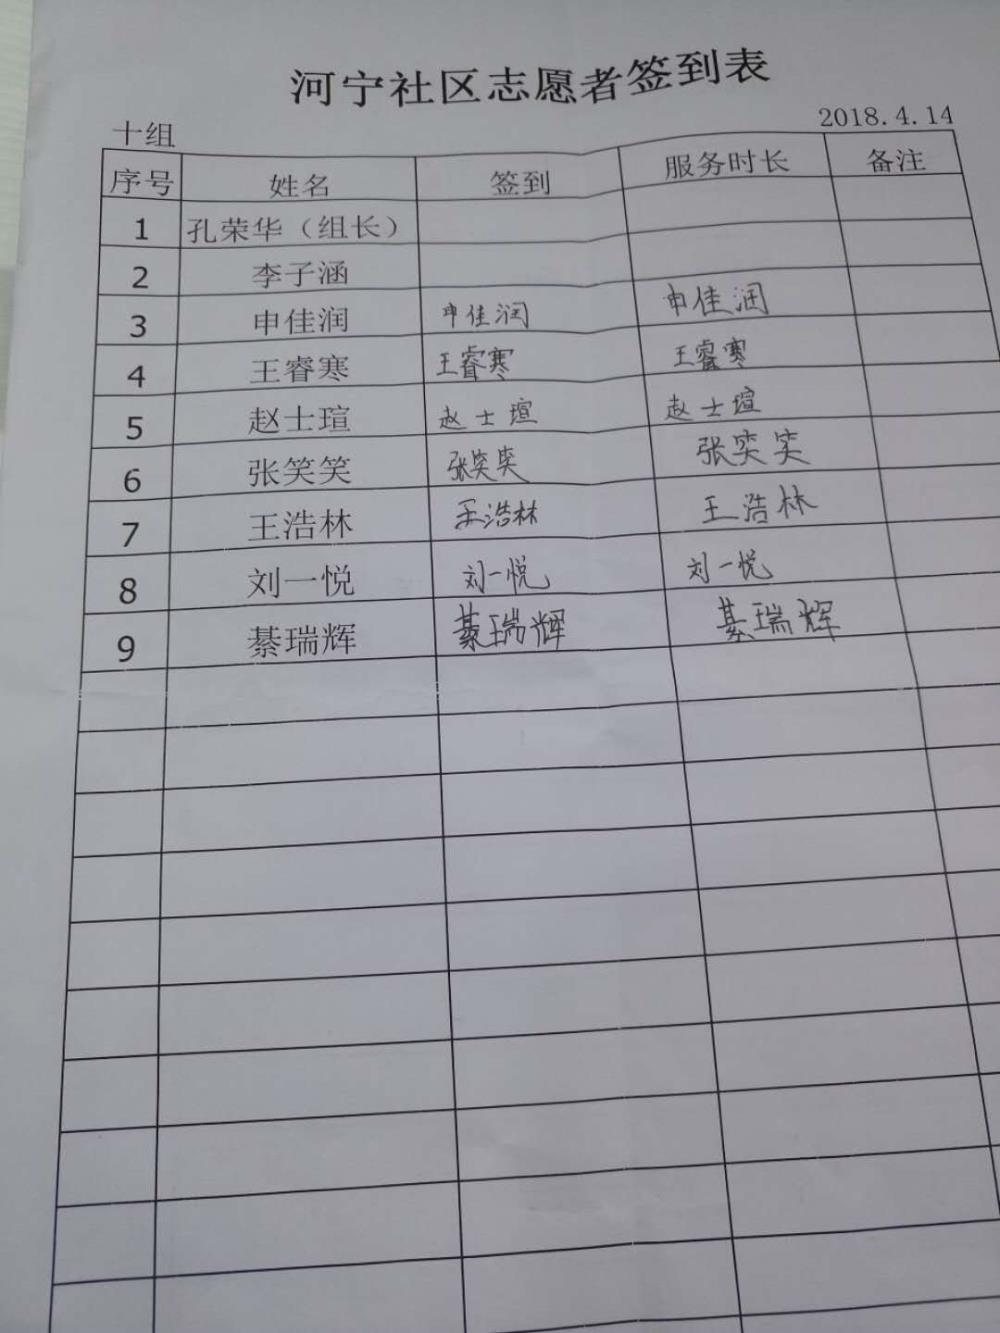 河宁社区志愿者签到表
十组 2018.4.14
序号 姓名 签到 服务时长 备注
1 孔荣华（组长）
2 李子涵
3 申佳润 申佳润 申佳润
4 王睿寒 王睿寒 王睿寒
5 赵士瑄 赵士瑄 赵士瑄
6 张笑笑 张笑笑 张笑笑
7 王浩林 王浩林 王浩林
8 刘一悦 刘一悦 刘一悦
9 綦瑞辉 綦瑞辉 綦瑞辉